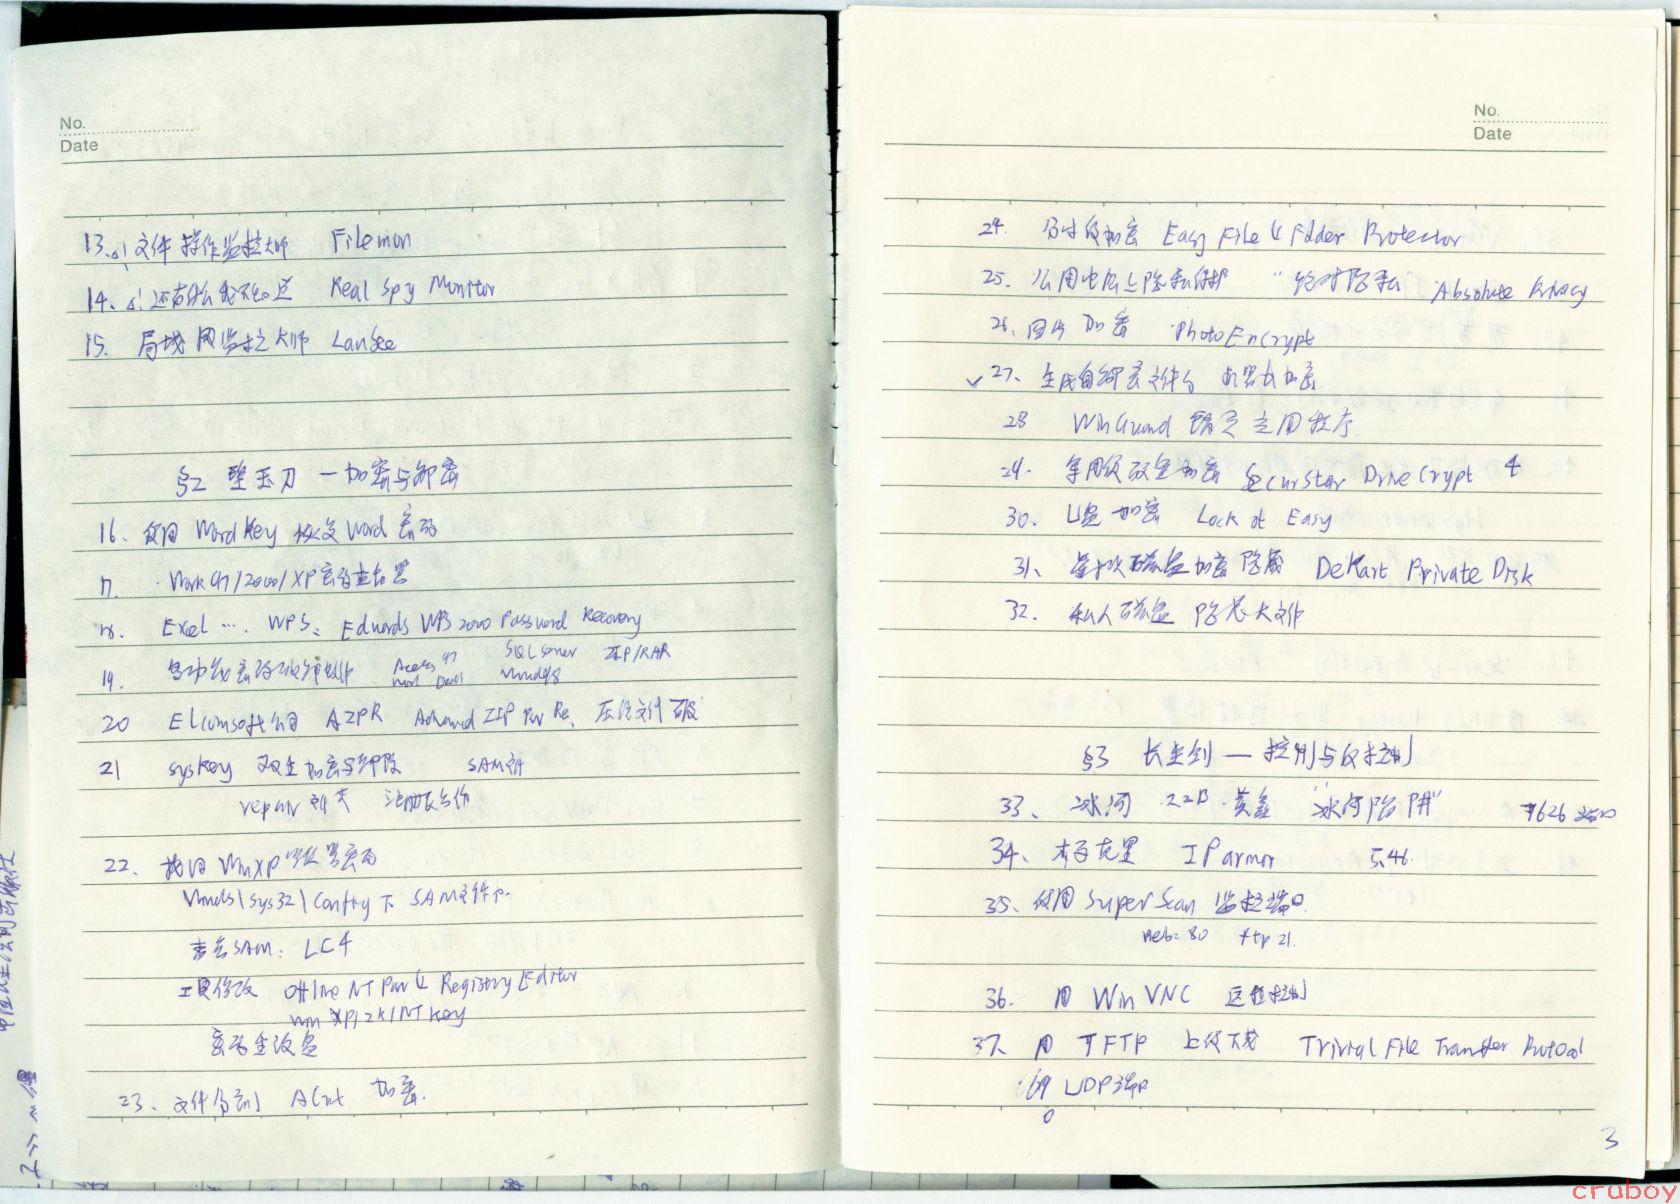 No.
Date
13. 文件操作监控大师 Filemon
14. 还有什么我不知道 Real Spy Monitor
15. 局域网监控大师 LanSee
§2 碧玉刀 — 加密与解密
16. 使用 WordKey 恢复 Word 密码
17. Work 97/2000/XP 密码查看器
18. Excel … WPS: Edwards WPS 2000 Password Recovery
19. 多功能密码破解软件 Access 97 SQL Server ZIP/RAR
20 Elcomsoft公司 AZPR Advanced ZIP Pw Re. 压缩文件破
21 syskey 双重加密与解除 SAM文件
repair 注册表备份
22. 找回 WinXP 密码
Winds\Sys32\Config 下 SAM文件中
SAM: LC4
工具修改 Offline NT Pw & Registry Editor
win XP/2K/NT Key
密码重设盘
23、文件分割 ACut 加密.
No.
Date
24. 加密 Easy File & Fodder Protector
25. 公用电脑上隐私保护 "绝对隐私" Absolute Privacy
26. 图片加密 PhotoEncrypt
✓ 27、生成自解密文件 加密
28 WinGuard 锁定应用程序
29. 军用级 加密 Securstar DriveCrypt 4
30. U盘加密 Lock it Easy
31、虚拟磁盘加密隐藏 Dekart Private Disk
32. 私人磁盘 隐藏大文件
§3 长生剑 — 控制与反控制
33、冰河 2.2B 黄鑫 "冰河陷阱" 7626 端口
34. 木马克星 IParmor 5.46.
35、使用 SuperScan 监控端口
web: 80 ftp 21.
36. 用 WinVNC 远程控制
37、用 TFTP 上传下载 Trivial File Transfer Protocol
69 UDP端口
0
3
cruboy